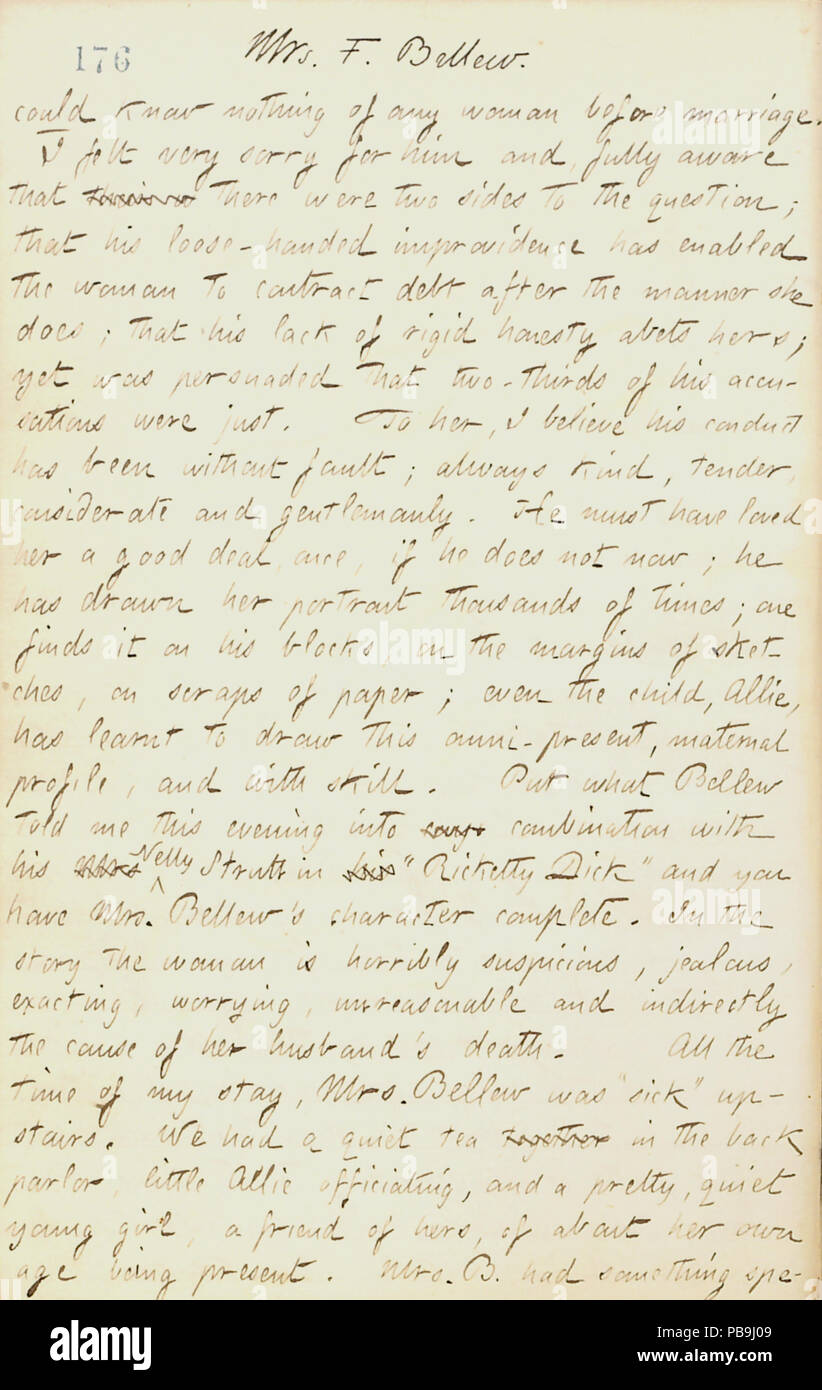 176
Mrs. F. Bellew.
could know nothing of any woman before marriage.
I felt very sorry for him and, fully aware
that there were two sides to the question;
that his loose-handed improvidence has enabled
the woman to contract debt after the manner she
does; that his lack of rigid honesty abets hers;
yet was persuaded that two-thirds of his accu-
sations were just. To her, I believe his conduct
has been without fault; always kind, tender,
considerate and gentlemanly. He must have loved
her a good deal once, if he does not now; he
has drawn her portrait thousands of times; one
finds it on his blocks, on the margins of sket-
ches, on scraps of paper; even the child, Allie,
has learnt to draw this omni-present, maternal
profile, and with skill. Put what Bellew
told me this evening into combination with
his Mrs Nelly Strutt in his "Ricketty Dick" and you
have Mrs. Bellew's character complete. In the
story the woman is horribly suspicious, jealous,
exacting, worrying, unreasonable and indirectly
the cause of her husband's death. All the
time of my stay, Mrs. Bellew was "sick" up-
stairs. We had a quiet tea together in the back
parlor, little Allie officiating, and a pretty, quiet
young girl, a friend of hers, of about her own
age being present. Mrs. B. had something spe-
alamy
Image ID: PB9J09
www.alamy.com